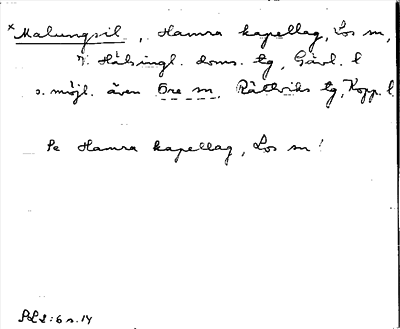 x Malungsil, Hamra kapellag, Los sn,
N. Hälsingl. doms. tg, Gävl. l
o. möjl. även Ore sn, Rättviks tg, Kopp. l.
Se Hamra kapellag, Los sn!
SOL 2:6 s. 14